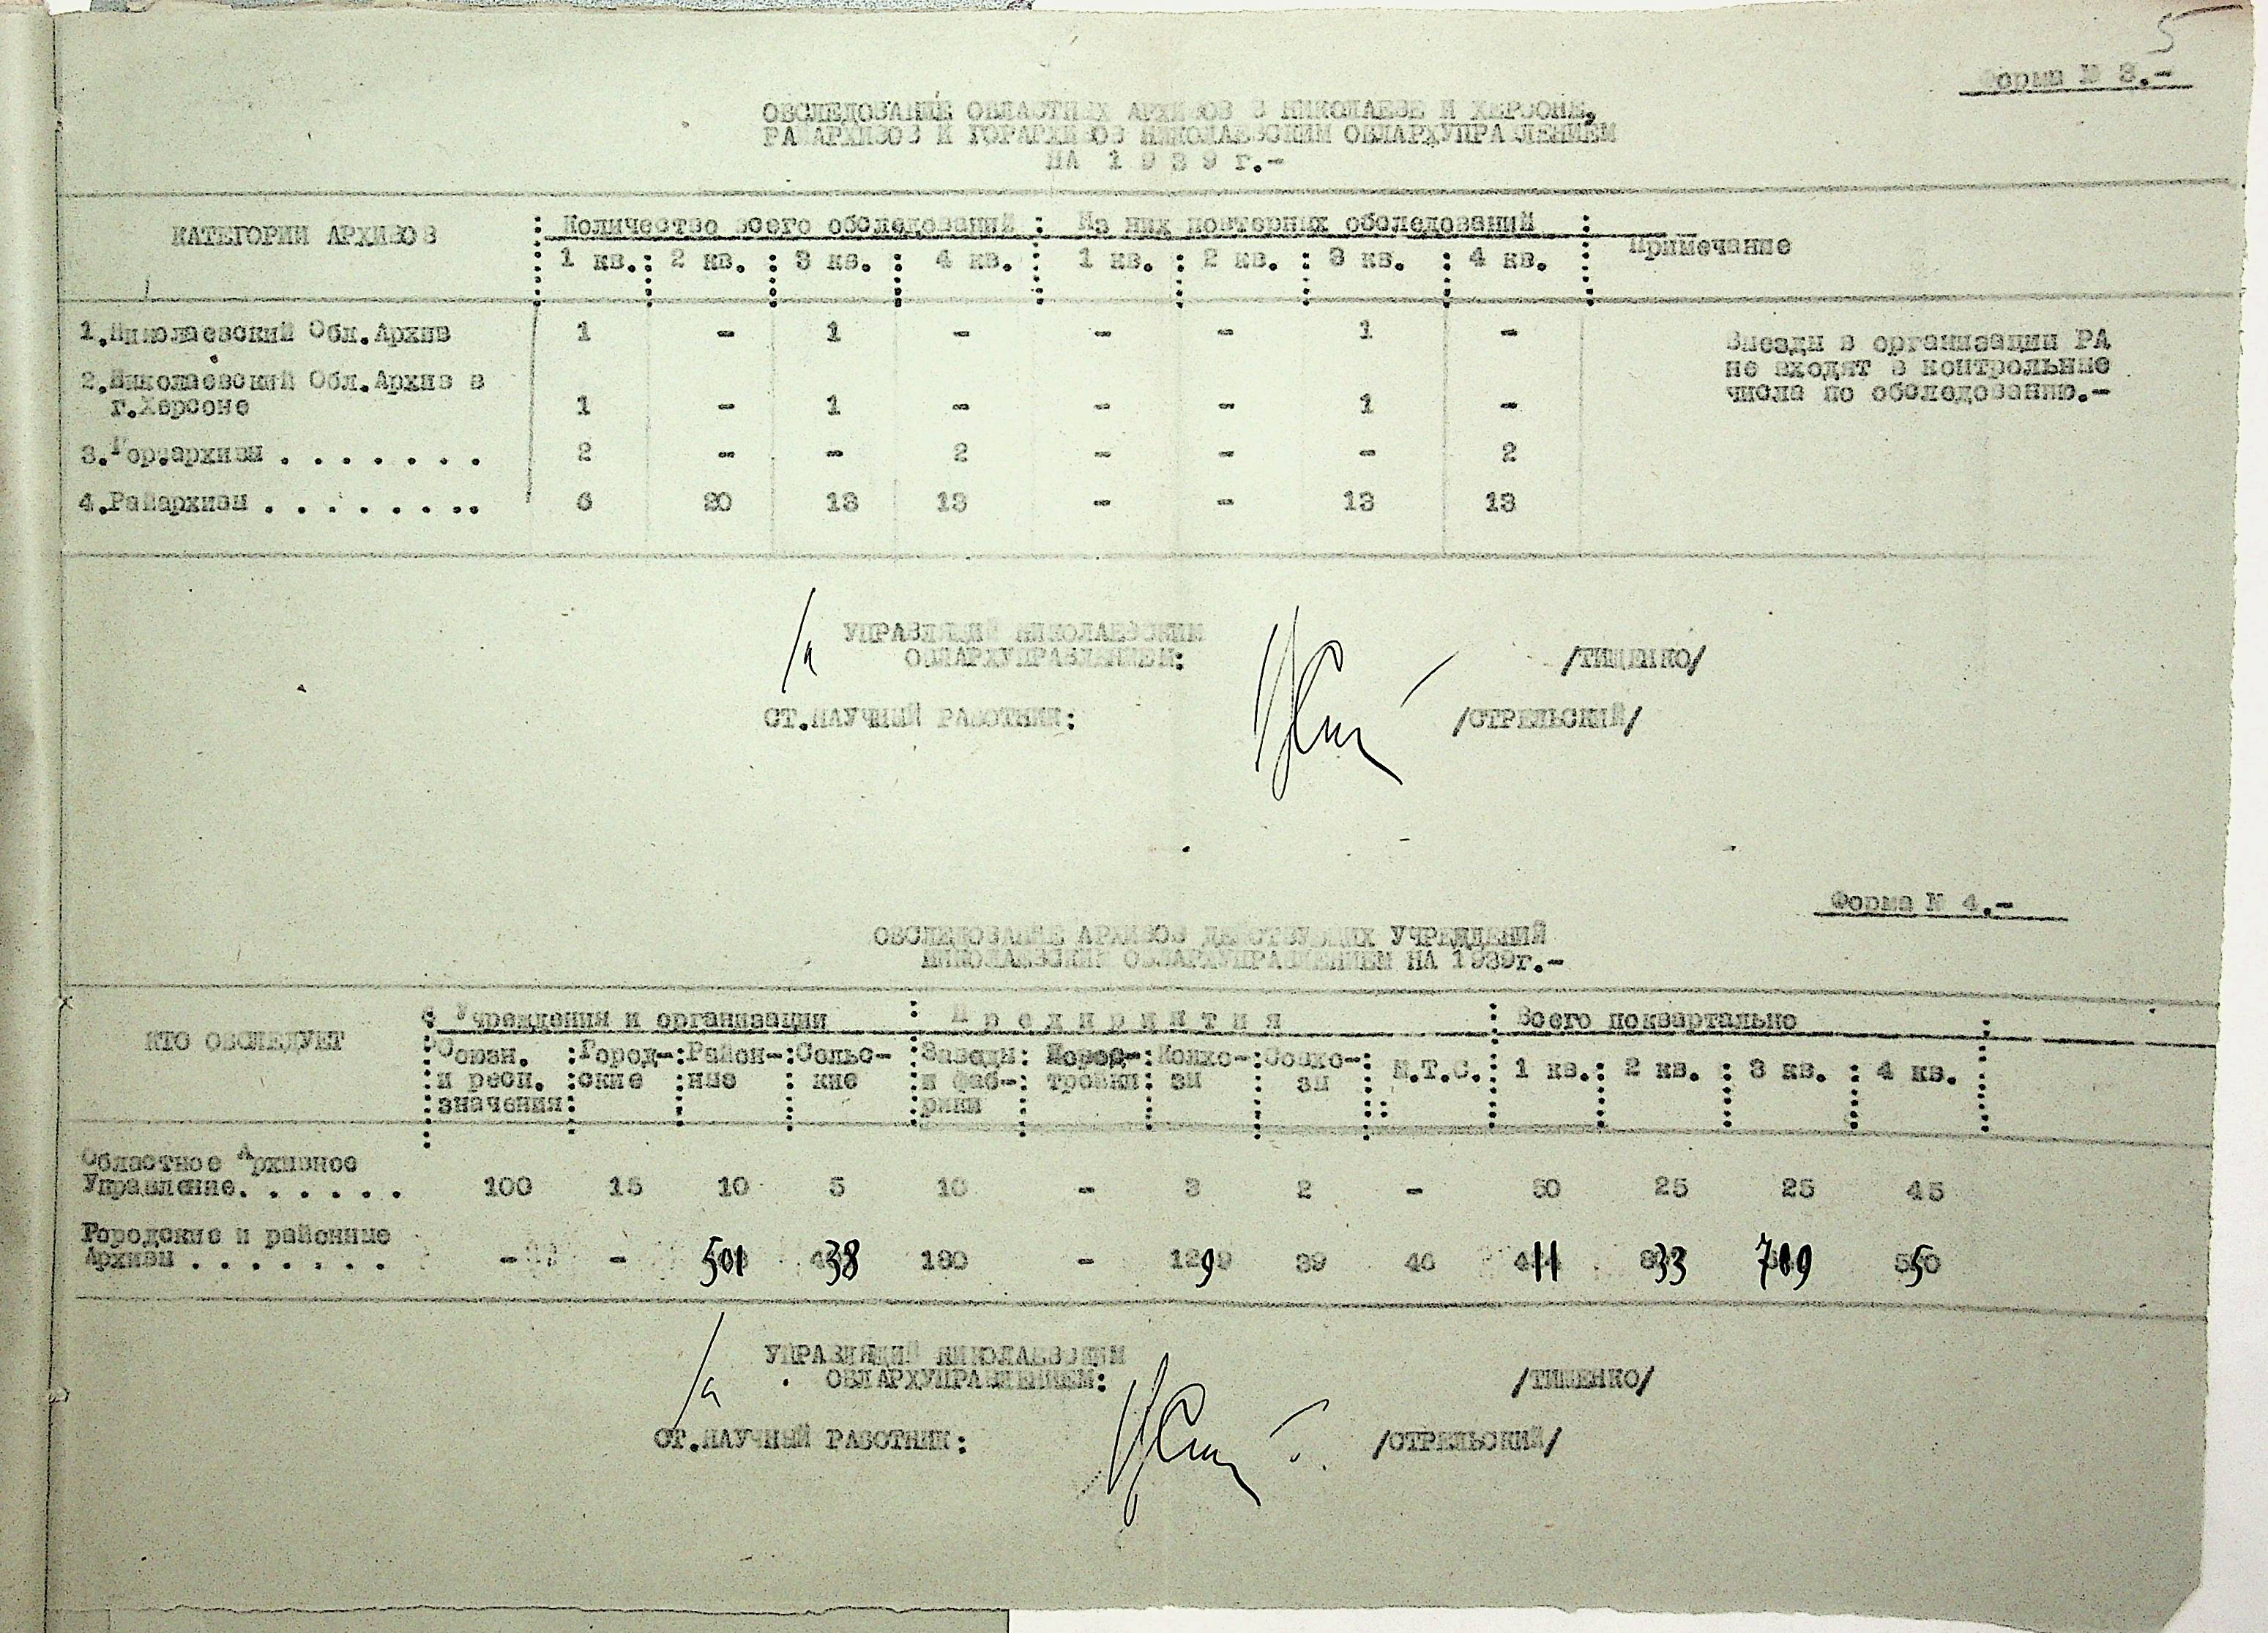 5
Форма № 3.-
ОБСЛЕДОВАНИЕ ОБЛАСТНЫХ АРХИВОВ В НИКОЛАЕВЕ И ХЕРСОНЕ,
РАЙАРХИВОВ И ГОРАРХИВОВ НИКОЛАЕВСКИМ ОБЛАРХУПРАВЛЕНИЕМ
НА 1939 г.-
КАТЕГОРИИ АРХИВОВ : Количество всего обследований : Из них повторных обследований : Примечание
1 кв. : 2 кв. : 3 кв. : 4 кв. : 1 кв. : 2 кв. : 3 кв. : 4 кв. :
1.Николаевский Обл.Архив 1 - 1 - - - 1 -
2.Николаевский Обл.Архив в
г.Херсоне 1 - 1 - - - 1 -
3.Гор.архивы . . . . . . . 2 - - 2 - - - 2
4.Райархивы . . . . . . . .. 6 20 13 13 - - 13 13
Выезды в организации РА
не входят в контрольные
числа по обследованию.-
УПРАВЛЯЮЩИЙ НИКОЛАЕВСКИМ
ОБЛАРХУПРАВЛЕНИЕМ: /ТИЩЕНКО/
СТ.НАУЧНЫЙ РАБОТНИК: /СТРЕЛЬСКИЙ/
Форма № 4.-
ОБСЛЕДОВАНИЕ АРХИВОВ ДЕЙСТВУЮЩИХ УЧРЕЖДЕНИЙ
НИКОЛАЕВСКИМ ОБЛАРХУПРАВЛЕНИЕМ НА 1939г.-
КТО ОБСЛЕДУЕТ : Учреждения и организации : Предприятия : Всего поквартально :
Союзн. : Город- : Район- : Сельс- : Заводы : : Колхо- : Совхо- : М.Т.С. : 1 кв. : 2 кв. : 3 кв. : 4 кв. :
и респ. : ские : ные : кие : и фаб- : : зы : зы
значения : рики
Областное Архивное
Управление. . . . . . 100 15 10 5 10 - 3 2 - 50 25 25 45
Городские и районные
Архивы . . . . . . . - - 501 438 180 - 1299 39 46 411 833 709 550
УПРАВЛЯЮЩИЙ НИКОЛАЕВСКИМ
ОБЛАРХУПРАВЛЕНИЕМ: /ТИЩЕНКО/
СТ.НАУЧНЫЙ РАБОТНИК: /СТРЕЛЬСКИЙ/